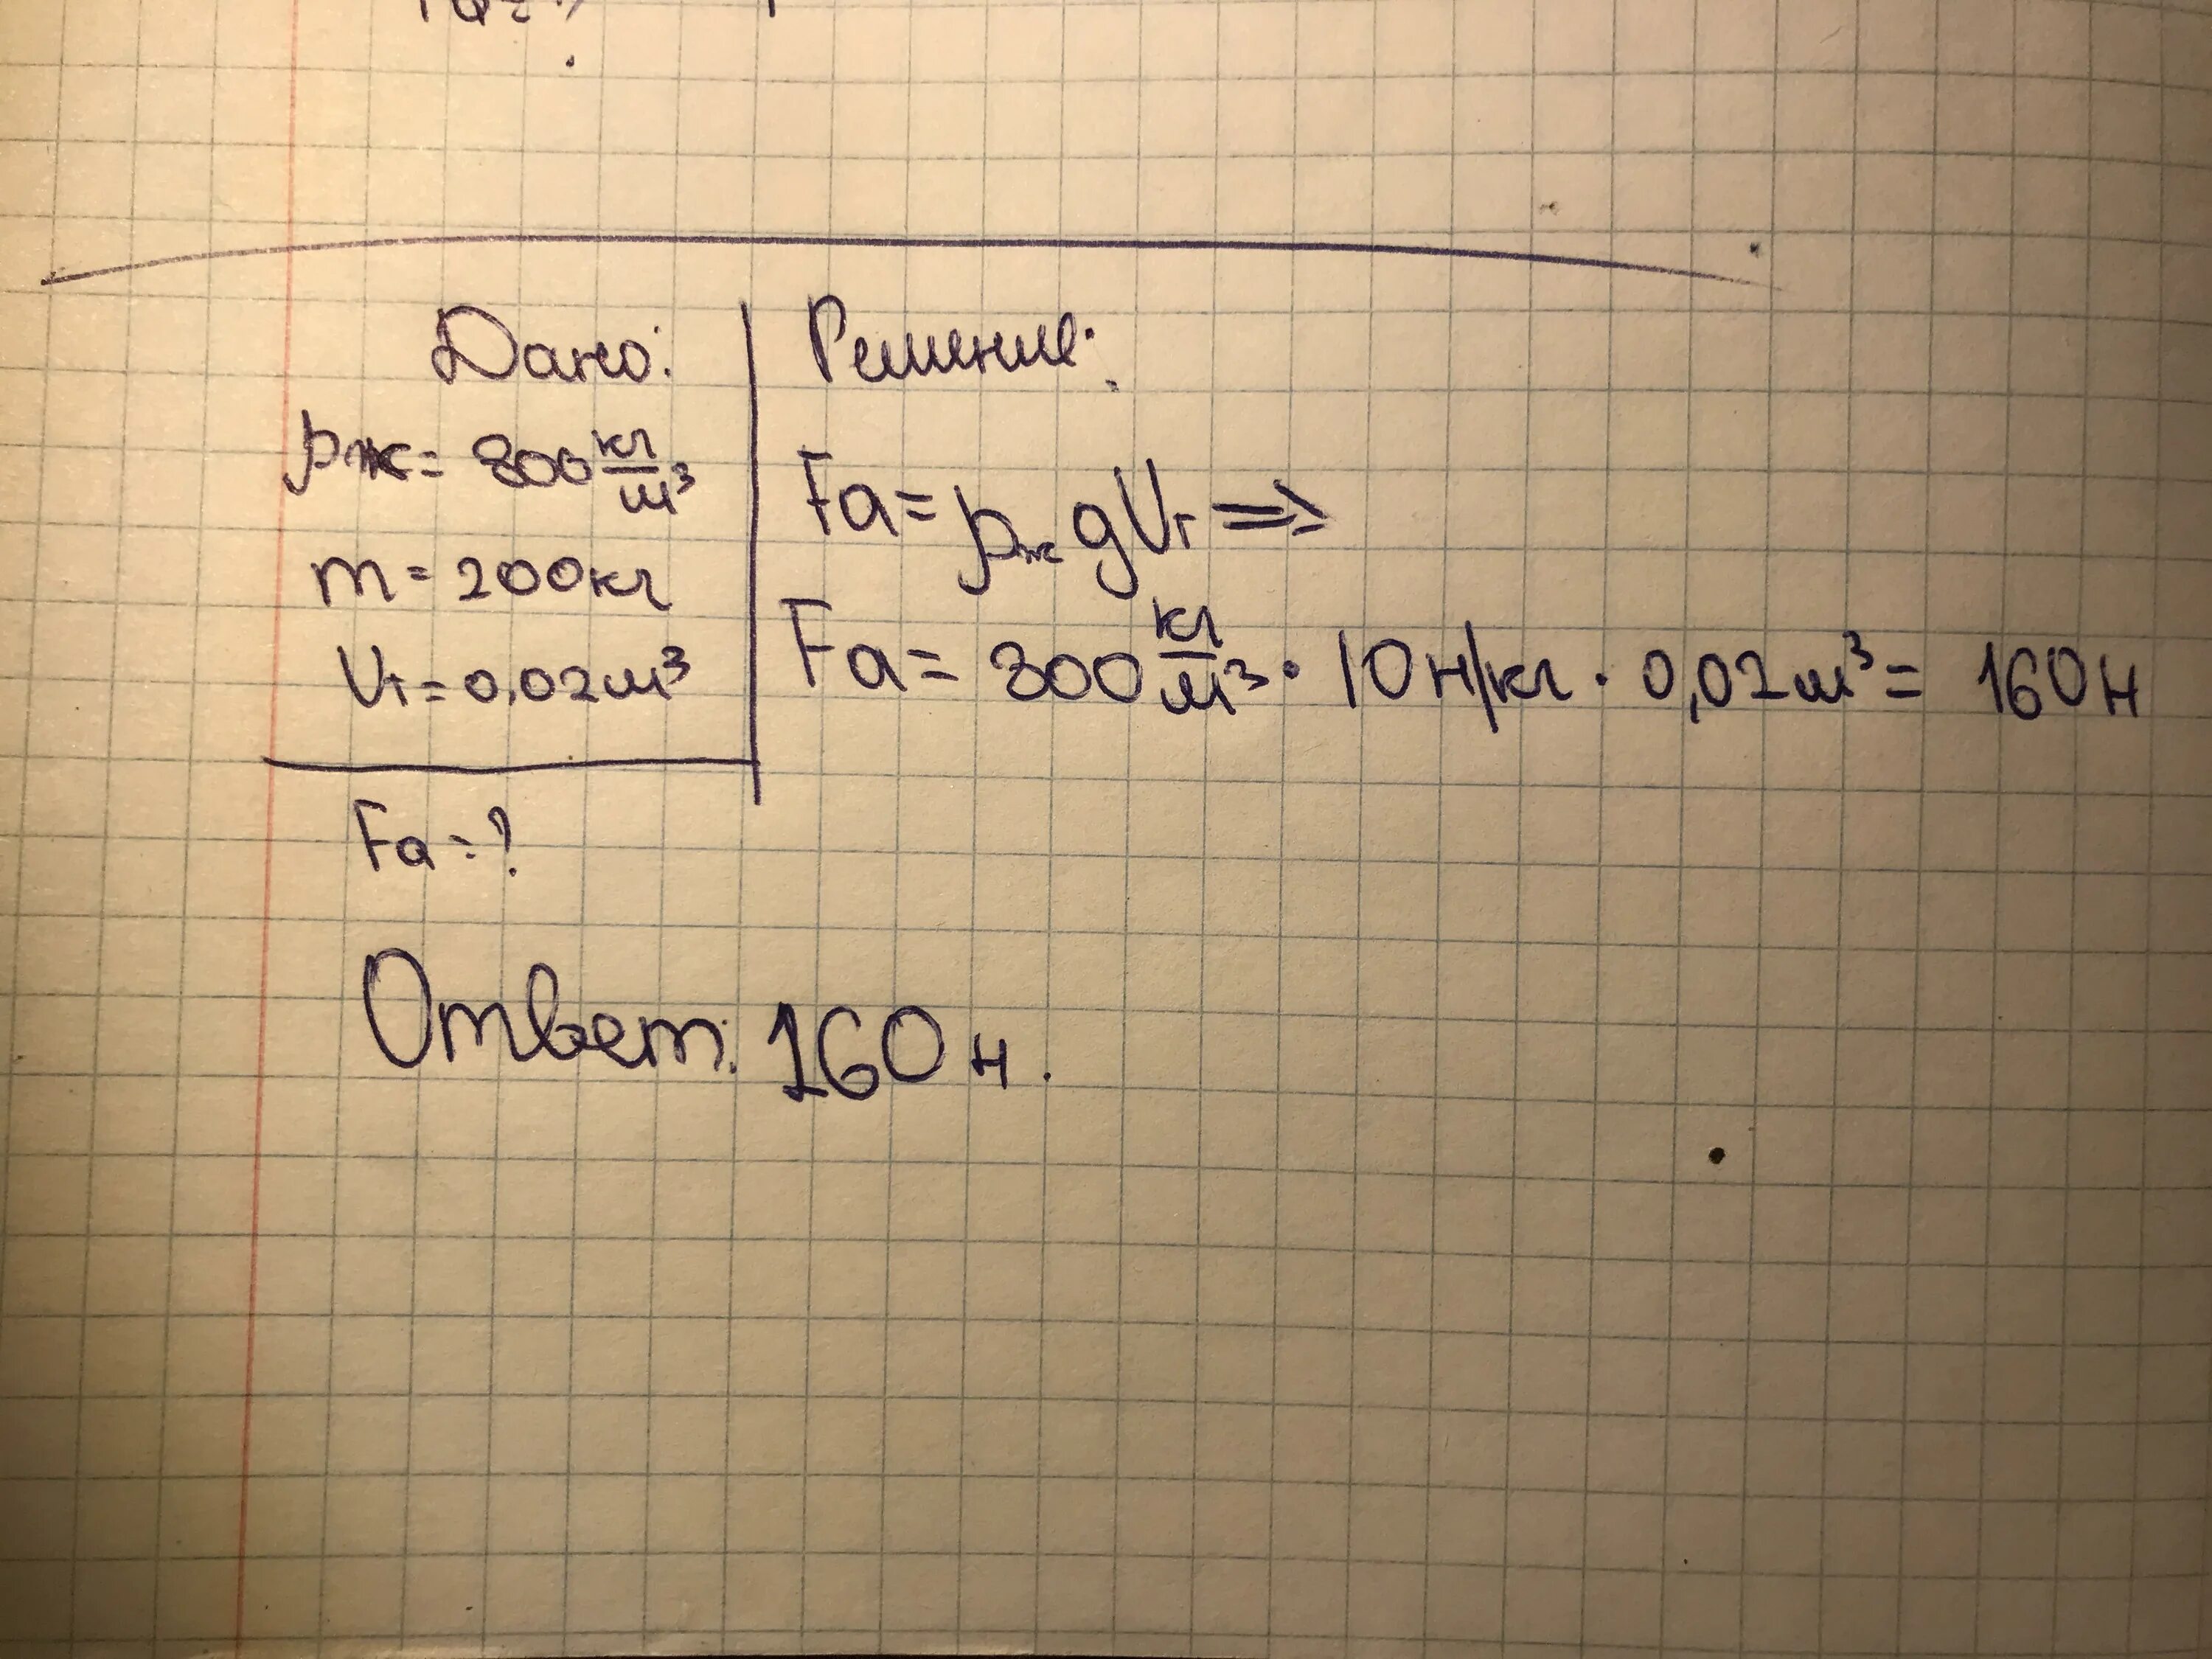 Дано:
ρж = 800 кг/м³
m = 200 кг
Vт = 0,02 м³
Fa = ?
Решение:
Fa = ρж g Vт =>
Fa = 800 кг/м³ · 10 н/кг · 0,02 м³ = 160 н
Ответ: 160 н.